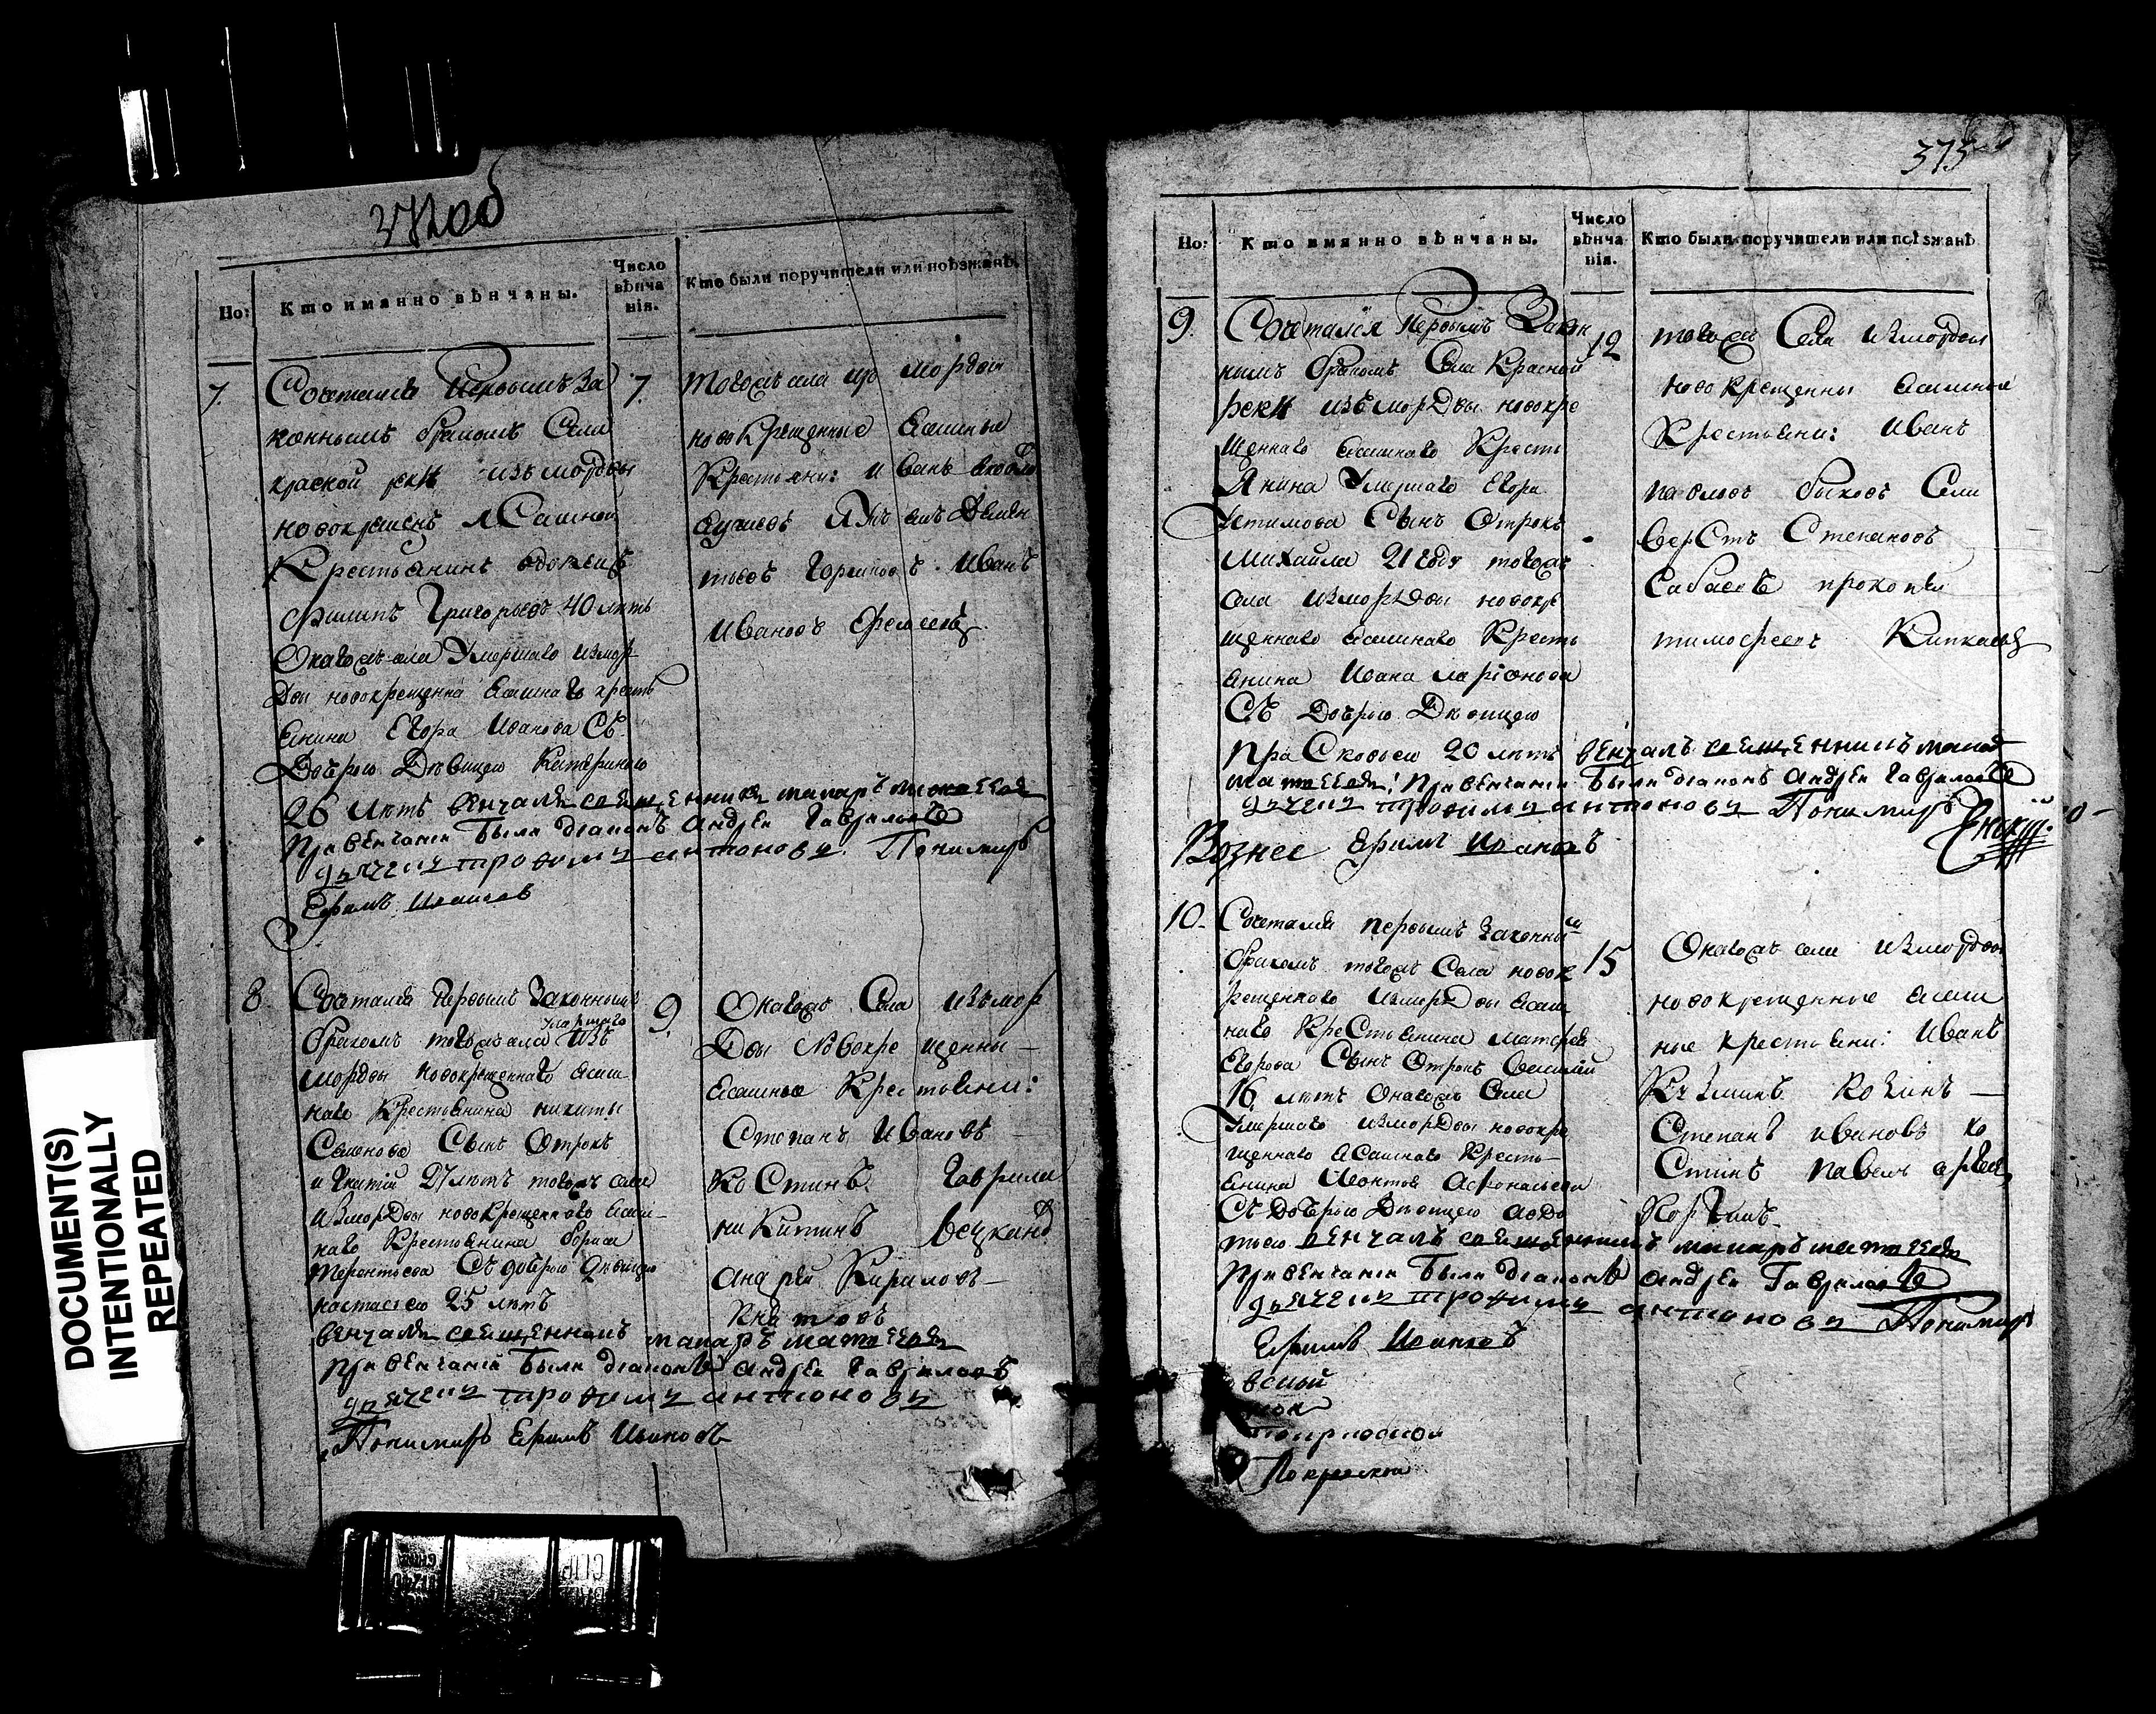 DOCUMENT(S)
INTENTIONALLY
REPEATED
372об
Но:
Кто имянно вѣнчаны.
Число вѣнча нія.
Кто были поручители или поѣзжанѣ.
7.
Сочетался Первымъ За
коннымъ бракомъ Села
красной рѣки изъ мордвы
новокрещенъ ясашной
Крестьянинъ вдовецъ
Филипъ Григорьевъ 40 лѣтъ
Онагожъ села Умершаго измор
двы новокрещенна ясашнаго кресть
янина Егора Иванова Съ
Доброю Дѣвицею Катериною
26 лѣтъ венчалъ священникъ макаръ матвеев
При венчании были диаконъ Андреи Гаврилов
дьячекъ трофимъ антоновъ Пономарь
Ефимъ Ивановъ
7.
тогожъ села из мордвы
новокрещенные Ясашные
Крестьяни: Иванъ
Иванъ
Ивановъ
8
Сочетался Первымъ Законнымъ
бракомъ тогожъ села умершаго изъ
мордвы новокрещеннаго ясаш
наго Крестьянина никиты
Семенова Сынъ Отрокъ
Игнатий 27 лѣтъ тогожъ села
Измордвы новокрещеннаго Ясаш
наго Крестьянина бориса
терентьева Съ доброю дѣвицею
настасьею 25 лѣтъ
венчалъ священникъ макаръ матвеев
При венчании были диаконъ Андреи Гавриловъ
дьячекъ трофимъ антоновъ
Пономарь Ефимъ Ивановъ
9.
Онагожъ Села изъмор
двы Новокре щенны
Ясашные Крестьяни:
Степанъ Ивановъ
КоСтинъ Гаврила
никитинъ
Андрей Кириловъ
373
Но:
Кто имянно вѣнчаны.
Число вѣнча нія.
Кто были поручители или поѣзжанѣ
9.
Сочетался Первымъ Закон
нымъ бракомъ Села Красной
рѣки изъ мордвы новокре
щеннаго ясашнаго Кресть
Янина Умершаго Егора
Устимова Сынъ Отрокъ
Михайла 21 году тогожъ
села измордвы новокре
щеннаго ясашнаго Кресть
янина Ивана ларіонова
Съ Доброю Дѣвицею
ПраСковьею 20 лѣтъ венчалъ священникъ макар
матвеев При венчании были диаконъ Андреи Гаврилов
дьячекъ трофимъ антоновъ Пономарь
Вознес Ефимъ Ивановъ Енскій
12
тогожъ Села измордвы
новокрещенны ясашные
Крестьяни: Иванъ
павловъ быковъ Сели
верСтъ Степановъ
Сабаевъ прокопей
тимофеевъ
10.
Сочетался первымъ Законны
бракомъ тогожъ Села новок
рещеннаго Измордвы ясаш
наго КреСтьянина матвея
Егорова Сынъ Отрокъ
16 лѣтъ Онагожъ Села
Умершаго измордвы новокре
щеннаго Ясашнаго Кресть
янина Леонтья
Съ Доброю Дѣвицею Авдо
тьею венчалъ священникъ макаръ матвеев
При венчании были диаконъ Андреи Гаврилов
дьячекъ трофимъ антоновъ Пономарь
Ефимъ Ивановъ
15
Онагожъ села измордвы
новокрещенные ясаш
ные крестьяни: Иванъ
Кузминъ
Степанъ ивановъ ко
Стинъ Павелъ